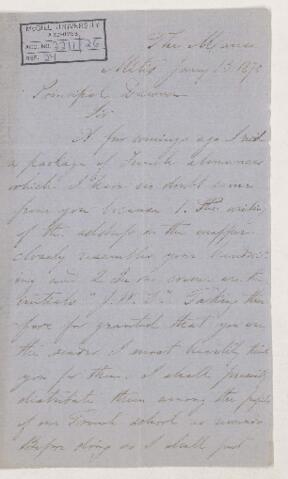 McGILL UNIVERSITY
ARCHIVES
ACC. NO. 2211/26
REF. 34
The Manse
Metis Jany 13 1872
Principal Dawson
Sir
A few evenings ago I recd
a package of French almanacs
which I have no doubt came
from you because 1. The writing
of the address on the wrapper
closely resembles your handwri-
ing and 2 In one corner are the
initials "J. W. D." Taking there-
fore for granted that you are
the sender I most heartily thank
you for them. I shall
distribute them among the pupils
of our French school as rewards
Before doing so I shall just